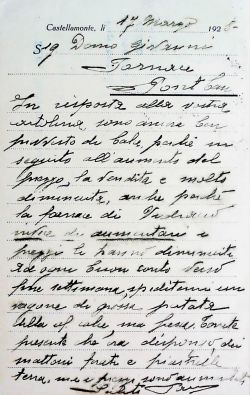 Castellamonte, li 17 Marzo 1928
Sig Domo Giovanni
Fornace
Pont Can
In risposta alla vostra
cartolina, sono ancora ben
provvisto di Calce, perchè in
seguito all'aumento del
prezzo, la vendita è molto
diminuita, anche perchè
la fornace di
invece di aumentare i
prezzi li hanno diminuiti
ad ogni buon conto verso
fine settimana, speditemi un
vagone di grossa
bella ma
presente che ora dispongo, dei
mattoni forti e piastrelle
terra, ma i prezzi sono aumentati